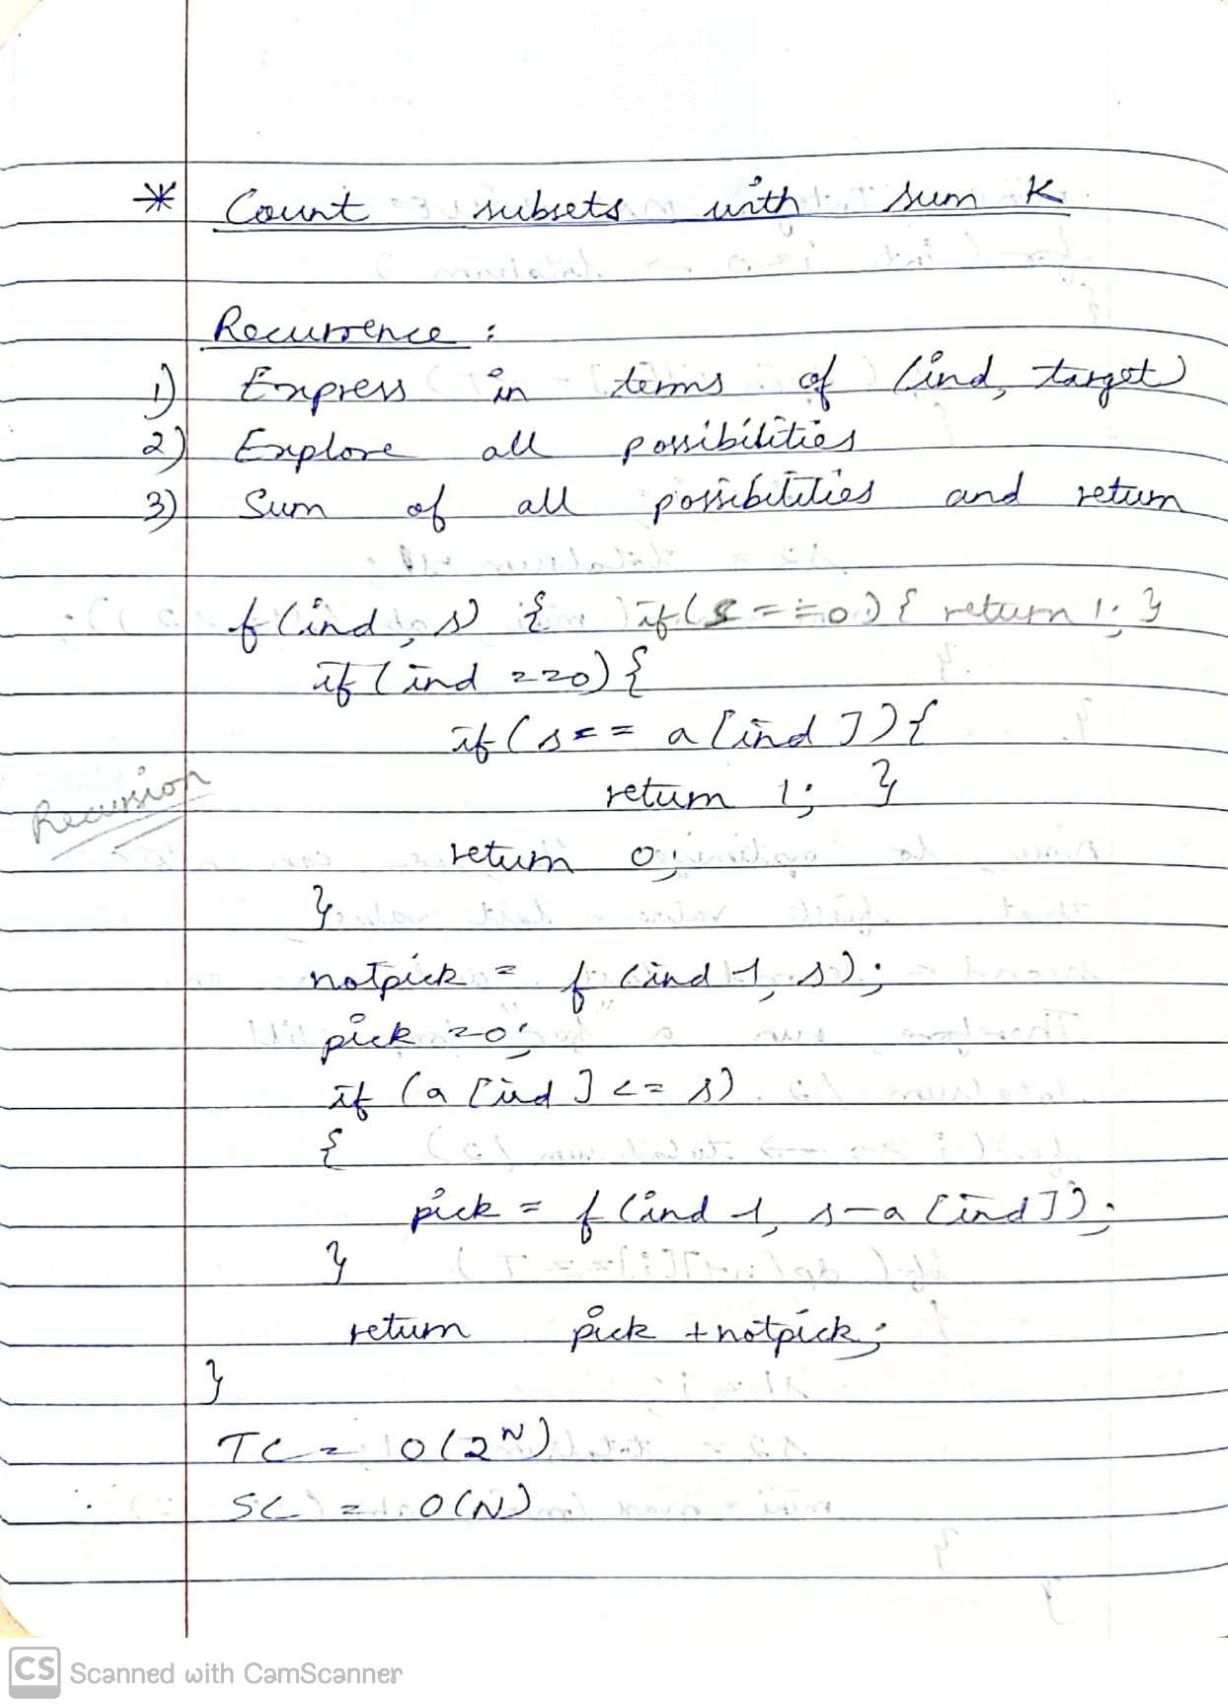 * Count subsets with sum K
Recurrence :
1) Express in terms of (ind, target)
2) Explore all possibilities
3) Sum of all possibilities and return
f(ind, s) { if(s == 0) { return 1; }
if (ind ==0) {
if (s == a[ind]) {
return 1; }
Recursion
return 0;
}
notpick = f(ind-1, s);
pick =0;
if (a[ind] <= s)
{
pick = f(ind-1, s-a[ind]);
}
return pick + notpick;
}
TC = O(2^N)
SC = O(N)
CS Scanned with CamScanner